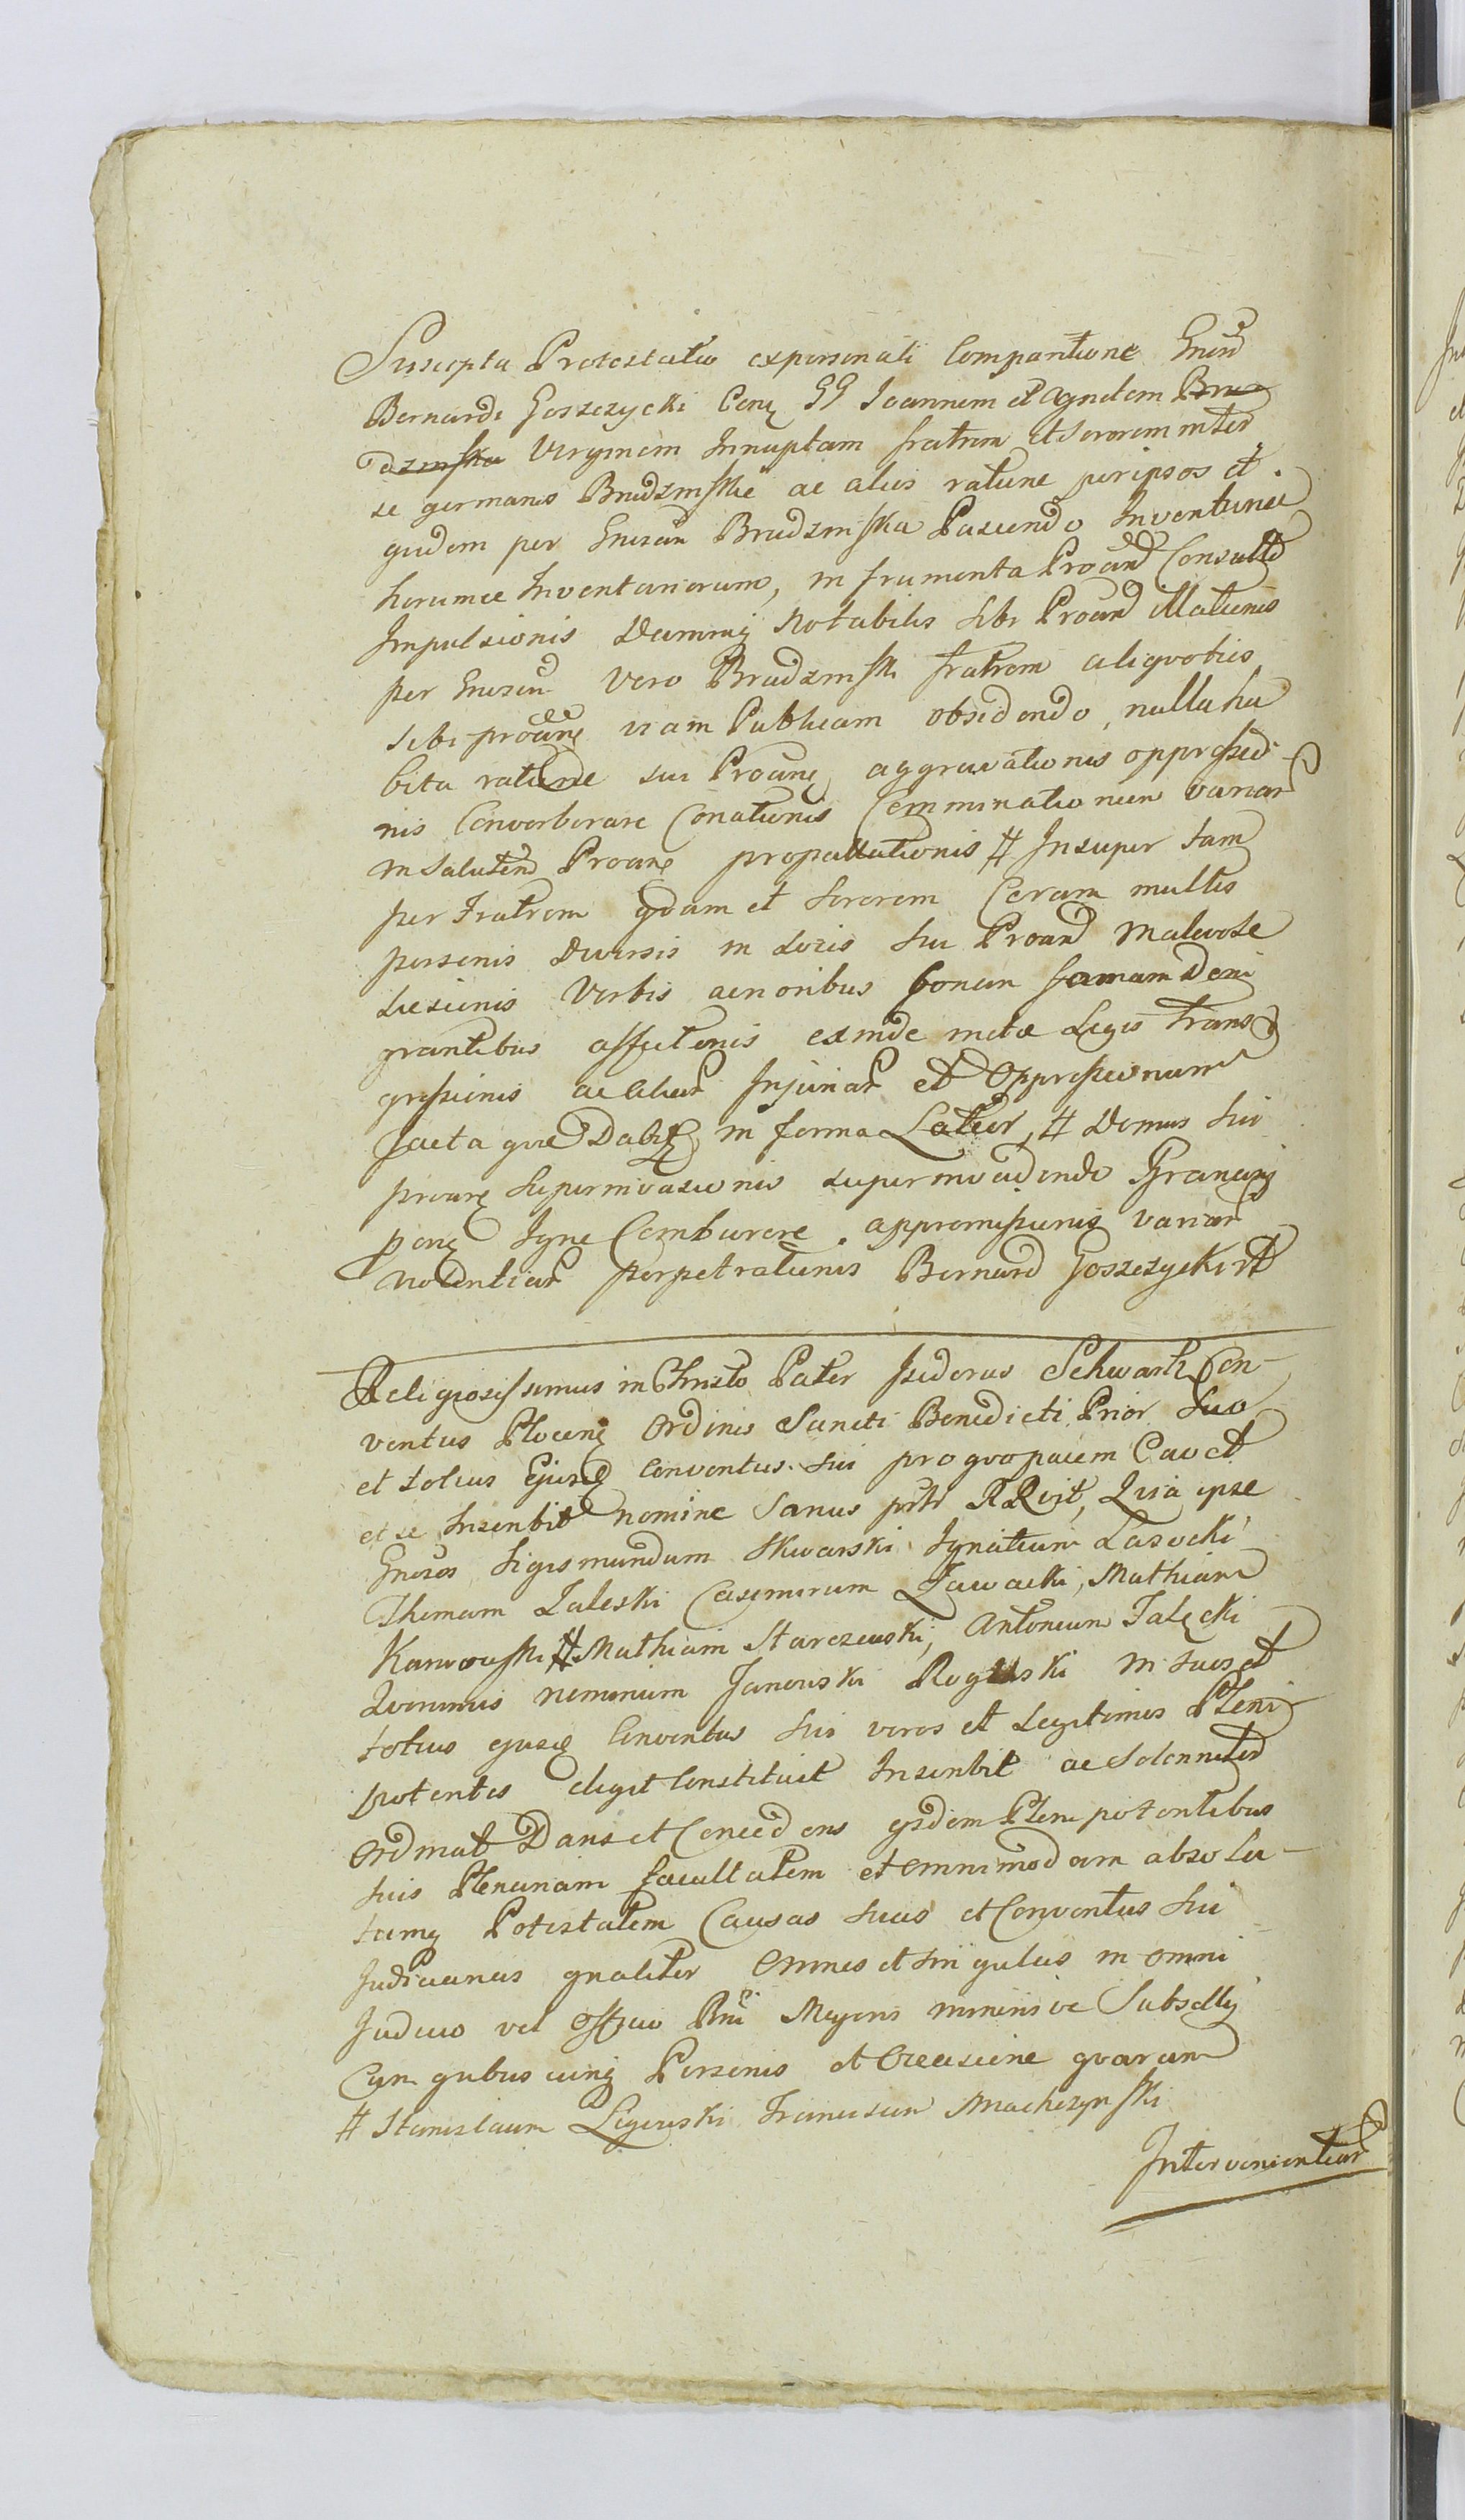 Suscepta Protestatio ex personali Comparitione Gnosi
Bernardi Goszczycki Con͠ GG Joannem et Agnetem Bru
dzinska Virginem Innuptam fratrem et Sororem inter
se germanos Brudzinskie ac alios ratione per ipsos et
quidem per Gnosam Brudzinska Pascendo Inventarie
horumce Inventariorum, in frumenta Proan Consulto
Impulsionis Damnij Notabilis sibi Proan illationis
per Gnosum Vero Brudzinski fratrem aliquoties
sibi proane viam Publicam obsedendo, nulla ha
bita ratione sui Proane aggravationis oppressio
nis Converberare Conationis Comminationum variar
in Salutem Proane propallationis # Insuper tam
per Fratrem qdam et Sororem Coram multis
personis diversis in Locis sui Proan malevole
Laesionis Verbis acrioribus bonam famam deni
grantibus affectionis exinde metae Legis trans
gressionis ac aliar Injuriar et Oppressionum
facta quae Dabit in forma Latior, # Domus sui
proane superinvasionis superinvadendo Granarij
pone Igne Comburere appromissionis variar
violentiar perpetrationis Bernard Goszczycki
Religiosissimus in Christo Pater Isidorus Schwartz Con-
ventus Plocen Ordinis Sancti Benedicti Prior Suo
et totius Ejusd Conventus sui pro quo pacem Cavet
et se Inscribit nomine Sanus ptr RRvit, Quia ipse
Gnosos Sigismundum Skwarski Ignatium Lasocki
Thomam Zaleski Casimirum Zawacki, Mathiam
Karwowski # Mathiam Starczewski, Antonium Falęcki
Duorumvis nominum Janowski Rogulski in suos et
totius ejusd Conventus sui veros et Legitimos Pleni
potentes elegit Constituit Inscribit ac Solenniter
Ordinat Dans et Concedens ejsdem Plenipotentibus
suis Plenariam facultatem et omnimodam absolu-
tamq Potestatem Causas suas et Conventus sui
Judiciarias gnaliter Omnes et singulas in omni
Judicio vel Officio Rni Majoris minorisve Subselly
Cum quibuscunq Personis et Occasione quarum
# Stanislaum Ligowski Franciscum Machczynski
Intervenientiar